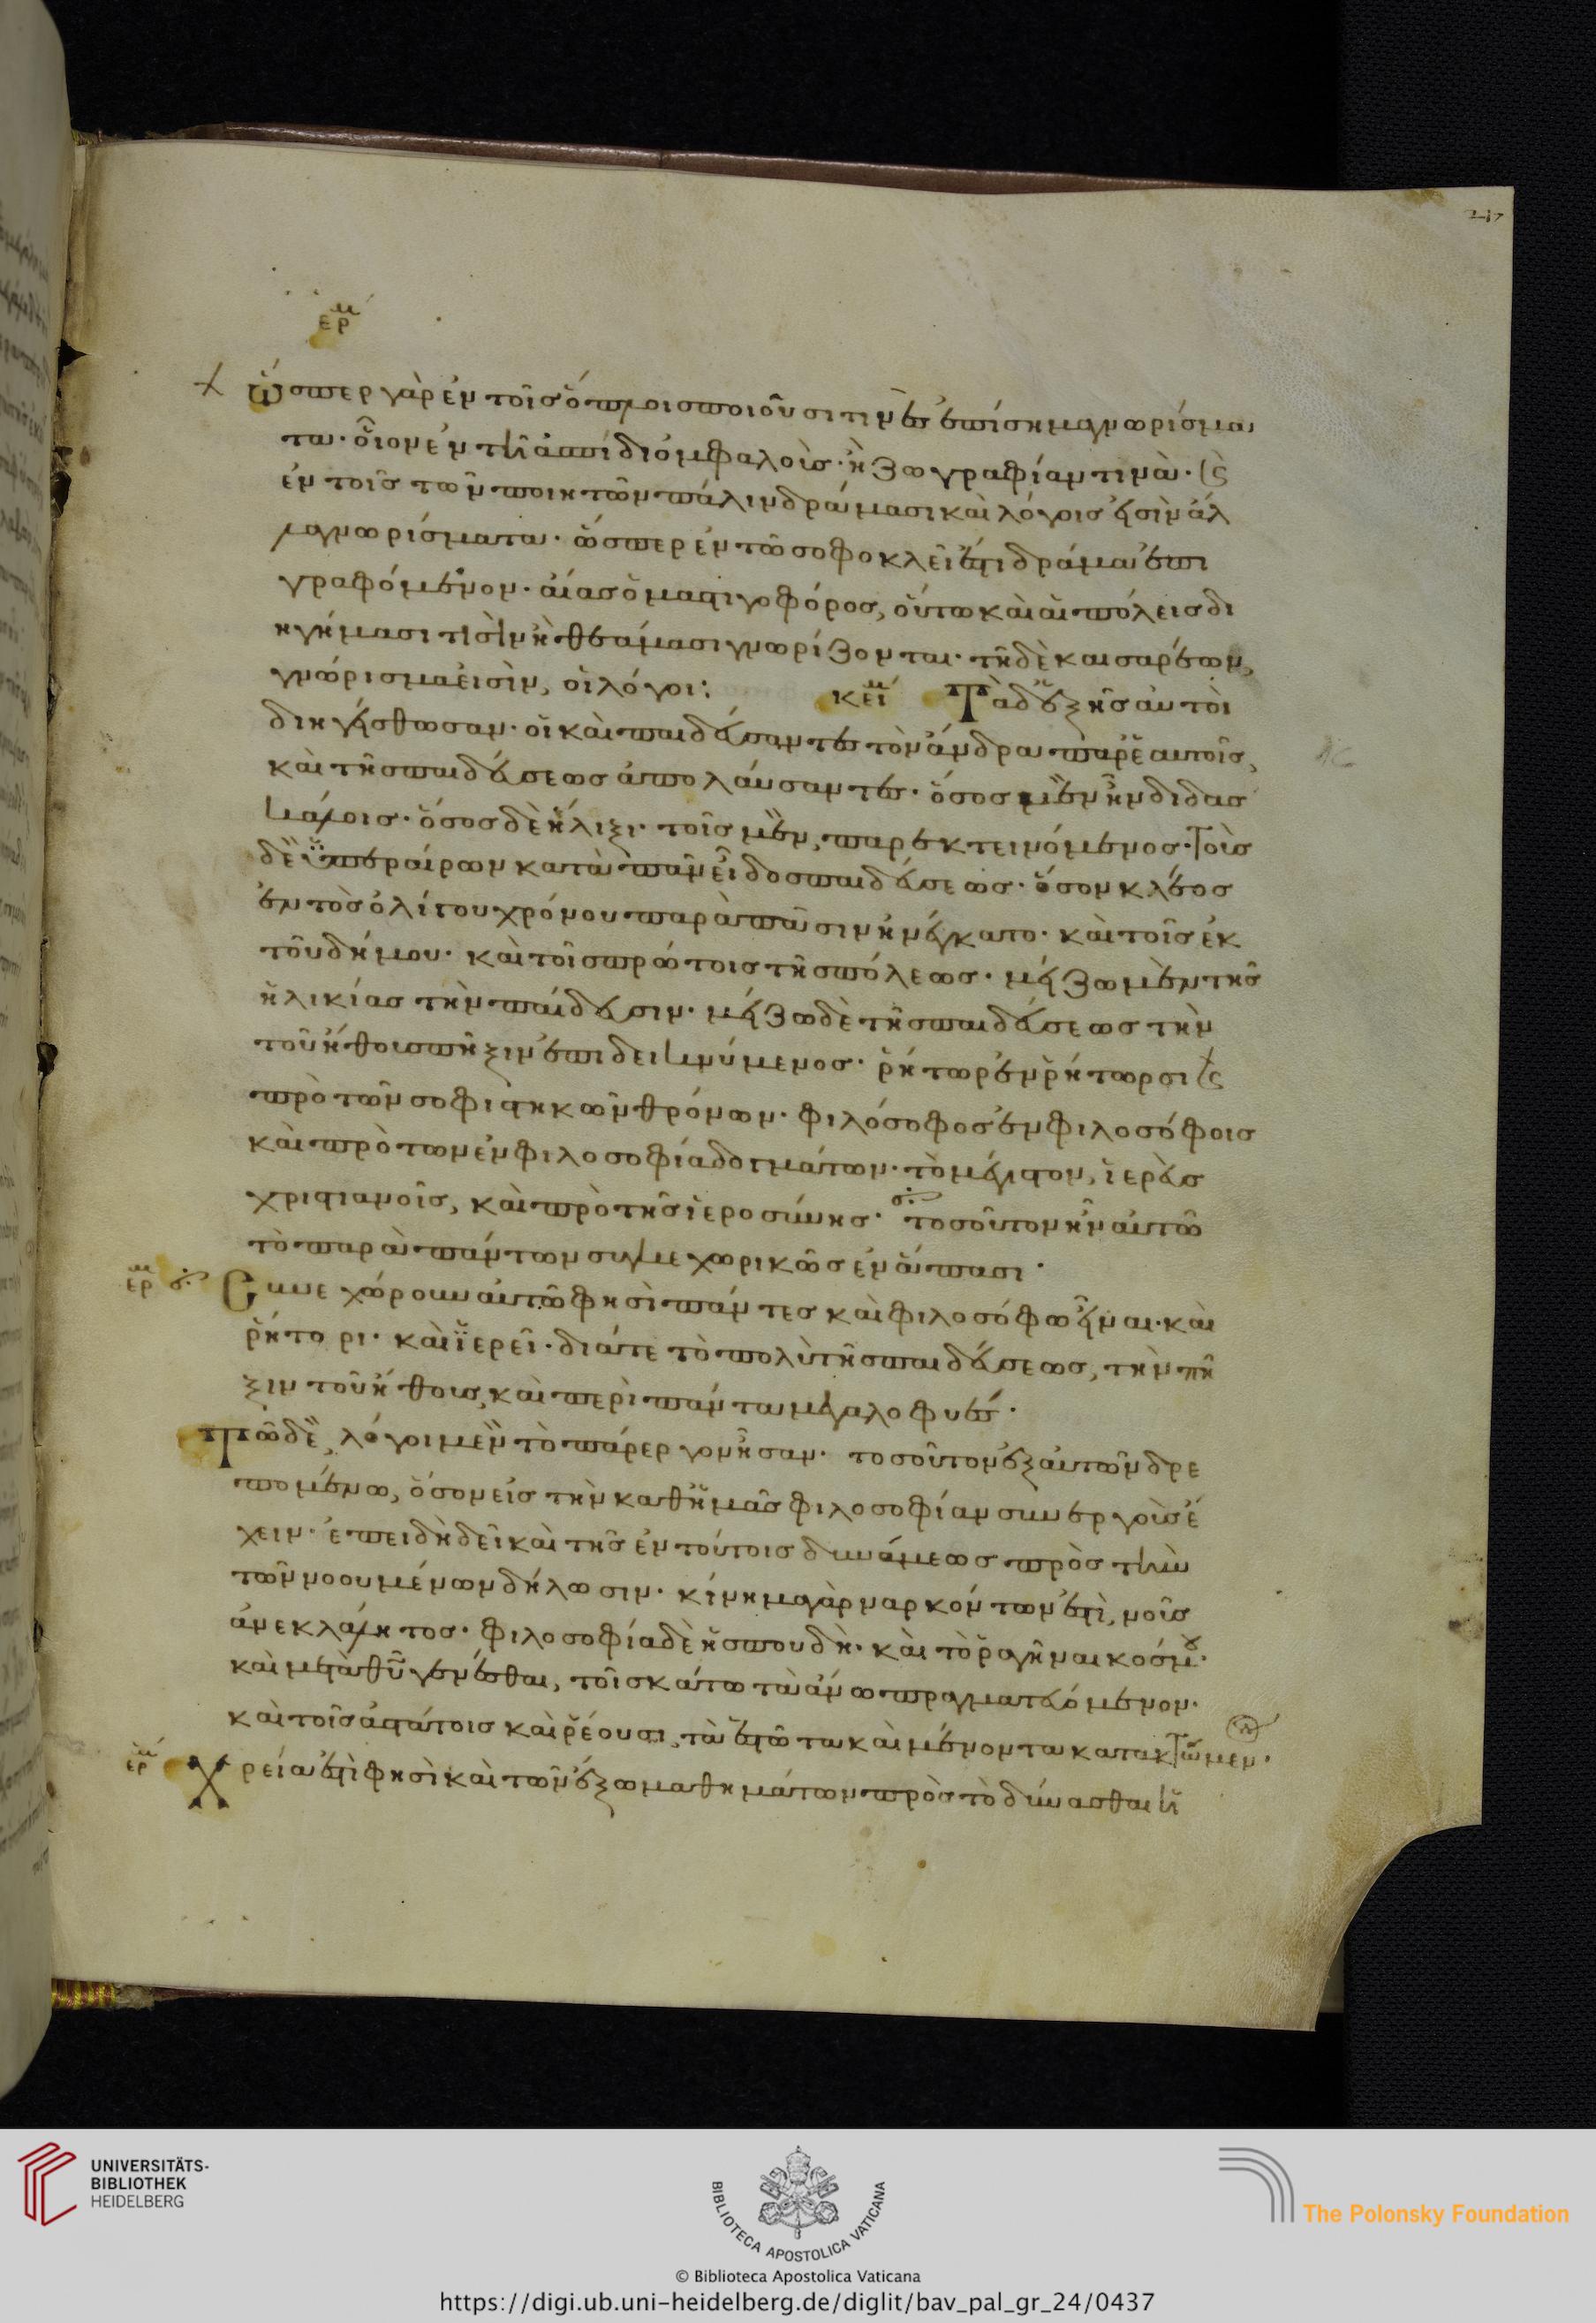 ἑρμ
Ὥσπερ γὰρ ἐν τοῖς ὅπλοις ποιοῦσι τινὲς ἐπίσημα γνωρίσμα
τα· οἷον ἐν τῆ ἀσπίδι ὀμφαλοὺς· ἢ ζωγραφίαν τινὰ· καὶ
ἐν τοῖς τῶν ποιητῶν πάλιν δράμασι καὶ λόγοις εἰσὶν ἄλ
λα γνωρίσματα· ὥσπερ ἐν τῶ σοφοκλεῖ ἐστι δράμα ἐπι
γραφόμενον· αἴας ὁ μαστιγοφόρος, οὕτω καὶ αἱ πόλεις δι
ηγήμασι τισὶν ἢ θεάμασι γνωρίζονται· τῆ δὲ καισαρέων,
γνώρισμα εἰσὶν, οἱ λόγοι:
κεί Τὰ δ' ἑξῆς αὐτοὶ
διηγείσθωσαν· οἳ καὶ παιδεύσαντες τὸν ἄνδρα παρ' ἑαυτοῖς,
καὶ τῆς παιδεύσεως ἀπολαύσαντες· ὅσος μὲν ἦν διδασ
κάλοις· ὅσος δὲ ἥλιξι· τοῖς μὲν, παρεκτεινόμενος· τοὺς
δὲ ὑπεραίρων κατὰ πᾶν εἶδος παιδεύσεως· ὅσον κλέος
ἐντὸς ὀλίγου χρόνου παρὰ πᾶσιν ἠνέγκατο· καὶ τοῖς ἐκ
τοῦ δήμου· καὶ τοῖς πρώτοις τῆς πόλεως· μείζω μὲν τῆς
ἡλικίας τὴν παίδευσιν· μείζω δὲ τῆς παιδεύσεως τὴν
τοῦ ἤθους πῆξιν ἐπιδεικνύμενος· ῥήτωρ ἐν ῥήτωρσι καὶ
πρὸ τῶν σοφιστικῶν θρόνων· φιλόσοφος ἐν φιλοσόφοις
καὶ πρὸ τῶν ἐν φιλοσοφία δογμάτων· τὸ μέγιστον, ἱερεὺς
χριστιανοῖς, καὶ πρὸ τῆς ἱεροσύνης· τοσοῦτον ἦν αὐτῶ
τὸ παρὰ πάντων συγκεχωρικῶς ἐν ἅπασι·
ἑρμ Συνεχώρουν αὐτῶ φησὶ πάντες καὶ φιλοσόφω εἶναι· καὶ
ῥήτορι· καὶ ἱερεῖ· διά τε τὸ πολὺ τῆς παιδεύσεως, τὴν πῆ
ξιν τοῦ ἤθους, καὶ περὶ πάντα μεγαλοφυὲς·
Τῶ δὲ, λόγοι μὲν τὸ πάρεργον ἦσαν· τοσοῦτον ἐξ αὐτῶν δρε
πομένω, ὅσον εἰς τὴν καθ' ἡμᾶς φιλοσοφίαν συνεργοὺς ἔ
χειν· ἐπειδὴ δεῖ καὶ τῆς ἐν τούτοις δυνάμεως πρὸς τὴν
τῶν νοουμένων δήλωσιν· κίνημα γὰρ ναρκόντων ἐστὶ, νοῦς
ἀνεκλάλητος· φιλοσοφία δὲ ἡ σπουδὴ· καὶ τὸ ῥαγῆναι κόσμου·
καὶ μετὰ θυ γενέσθαι, τοῖς κάτω τὰ ἄνω πραγματευόμενον·
καὶ τοῖς ἀστάτοις καὶ ῥέουσι, τὰ ἑστῶτα καὶ μένοντα κατακτώμεν·
ἑρμ Χρεία ἐστὶ φησὶ καὶ τῶν ἔξω μαθημάτων πρὸς τὸ δύνασθαι ἡ
UNIVERSITÄTS-
BIBLIOTHEK
HEIDELBERG
BIBLIOTECA APOSTOLICA VATICANA
The Polonsky Foundation
© Biblioteca Apostolica Vaticana
https://digi.ub.uni-heidelberg.de/diglit/bav_pal_gr_24/0437